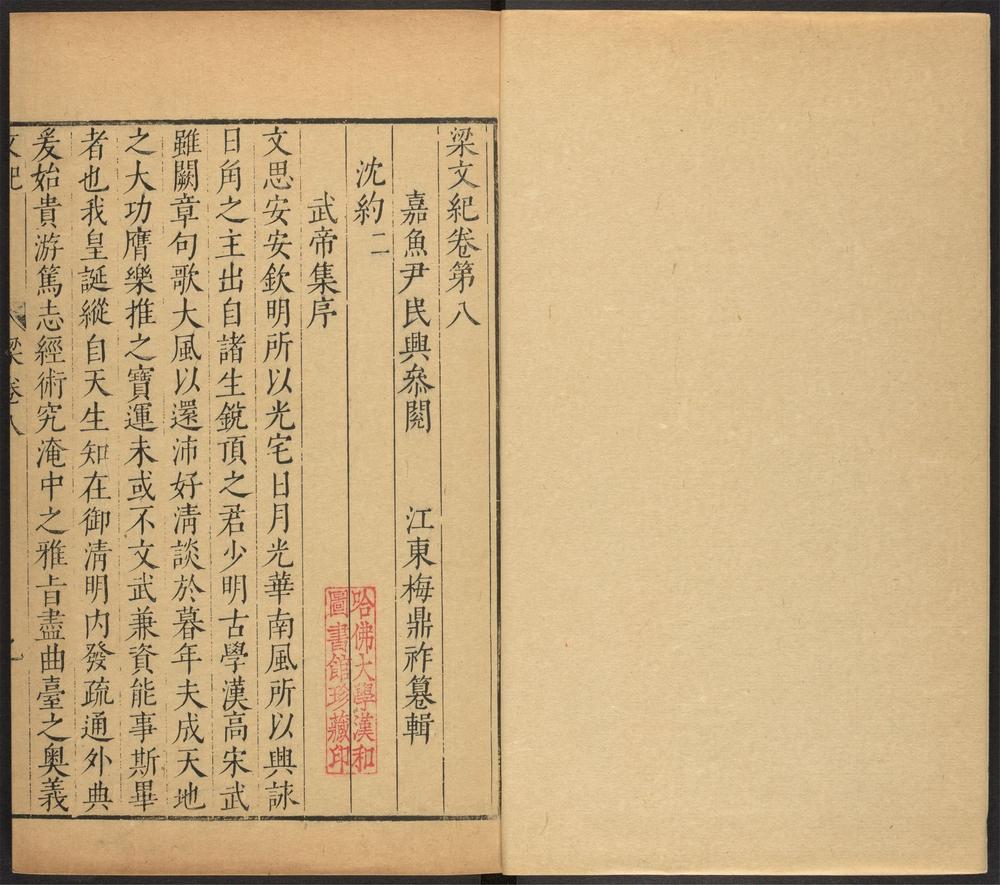 梁文紀卷第八
嘉魚尹民興叅閱 江東梅鼎祚纂輯
沈約二
武帝集序
文思安安欽明所以光宅日月光華南風所以興詠
日角之主出自諸生銳頂之君少明古學漢高宋武
雖闕章句歌大風以還沛好清談於暮年夫成天地
之大功膺樂推之寶運未或不文武兼資能事斯畢
者也我皇誕縱自天生知在御清明內發疏通外典
爰始貴游篤志經術究淹中之雅旨盡曲臺之奥義
文紀 梁卷八
哈佛大學漢和
圖書館珍藏印